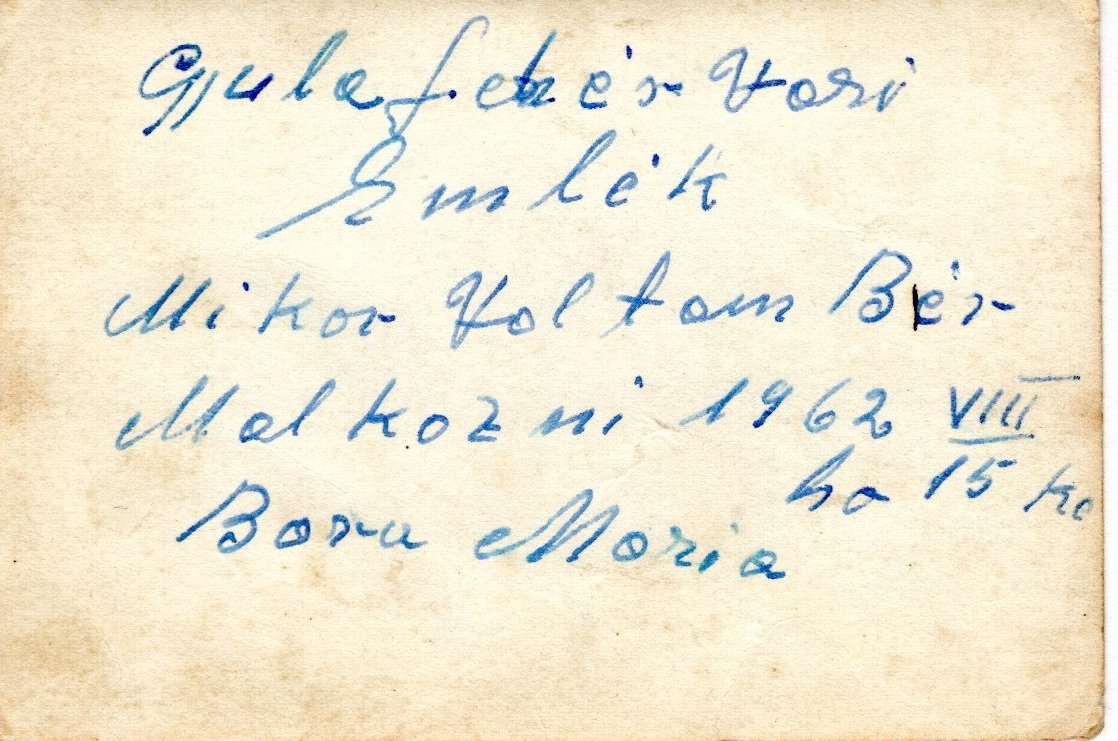 Gyulafehér Vari
Emlék
Mikor Voltam Bér
Malkozni 1962 VIII
ho 15 ke
Bora Maria